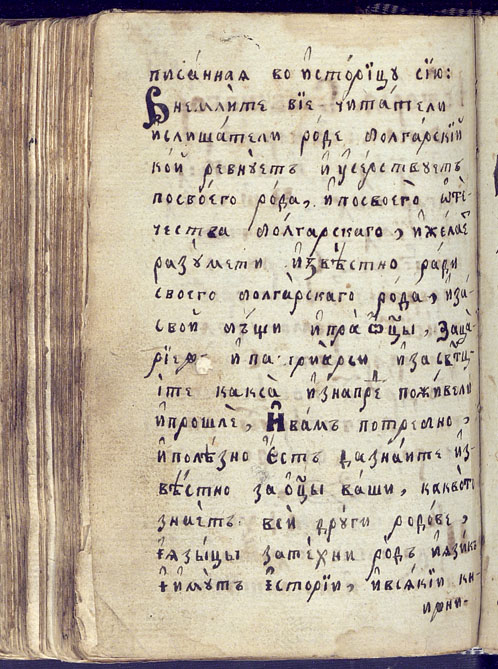 писа́нная во и҆сторі́ицу сїю̀:
Внемли́те вїе чита́тели
и слиша́тели ро́де болгарскїй
кой ревнуетъ и҆ усе́рствуетъ
по свое́го ро́да, и҆ по своегѡ ѿте-
чества бо́лгарскаго, и҆ жела́е
разу́мети и҆звѣстно ра́ди
своего болга́рскаго ро́да, и҆ за-
свой и҆ пра ѻ҆цы, за ца-
рїе и҆ па трїа́рси и҆ за свт҃ц-
їте какса̀ и҆знапрѐ поживели
и҆ прошлѐ, И҆ ва́мъ потребно,
и҆ поле́зно є҆стъ да зна́йте и҆з-
вѣстно за ѻ҆цы ва́ши, какво̀
зна́етъ всѝ други родове,
и҆ язы́цы за те́хни родъ и҆ язикъ
и҆му́тъ и҆сторїи, и҆ всякїй кн-
ижни-